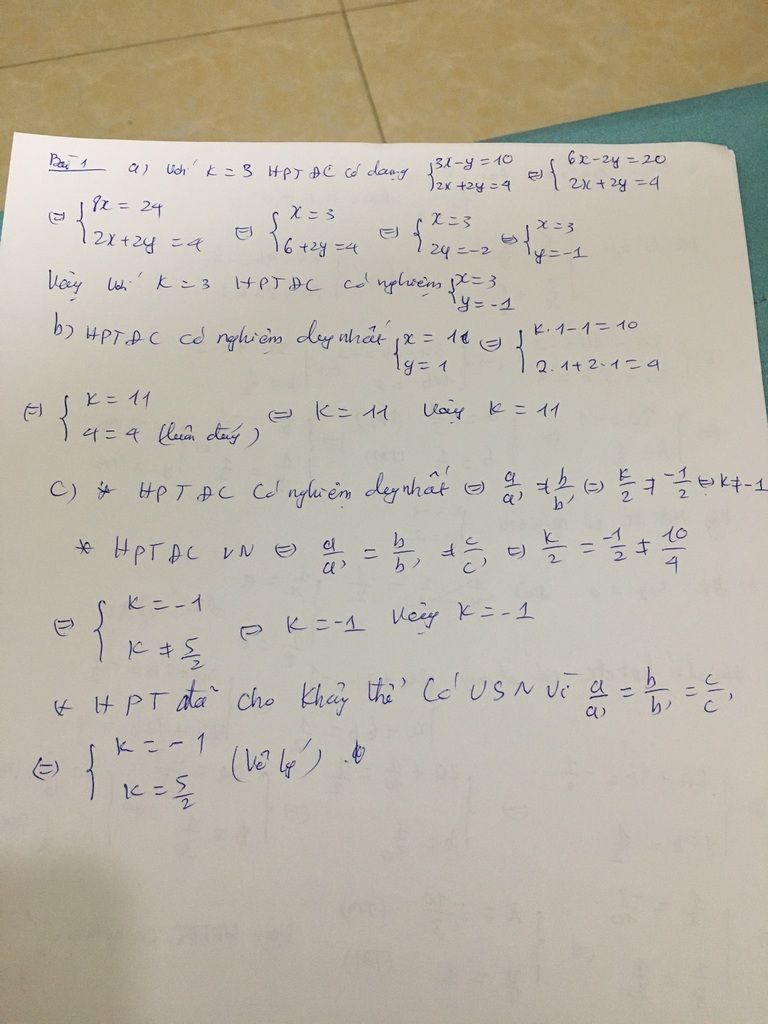 Bài 1 a) Với K = 3 HPT ĐC có dạng { 3x - y = 10 ; 2x + 2y = 4 ⇔ { 6x - 2y = 20 ; 2x + 2y = 4
⇔ { 8x = 24 ; 2x + 2y = 4 ⇔ { x = 3 ; 6 + 2y = 4 ⇔ { x = 3 ; 2y = -2 ⇔ { x = 3 ; y = -1
Vậy với K = 3 HPT ĐC có nghiệm { x = 3 ; y = -1
b) HPT ĐC có nghiệm duy nhất { x = 1 ; y = 1 ⇔ { K.1 - 1 = 10 ; 2.1 + 2.1 = 4
⇔ { K = 11 ; 4 = 4 (luôn đúng) ⇔ K = 11 Vậy K = 11
c) * HPT ĐC có nghiệm duy nhất ⇔ a/a' ≠ b/b' ⇔ K/2 ≠ -1/2 ⇔ K ≠ -1
* HPT ĐC VN ⇔ a/a' = b/b' ≠ c/c' ⇔ K/2 = -1/2 ≠ 10/4
⇔ { K = -1 ; K ≠ 5/2 ⇔ K = -1 Vậy K = -1
* HPT đã cho không thể có VSN vì a/a' = b/b' = c/c'
⇔ { K = -1 ; K = 5/2 (Vô lý).